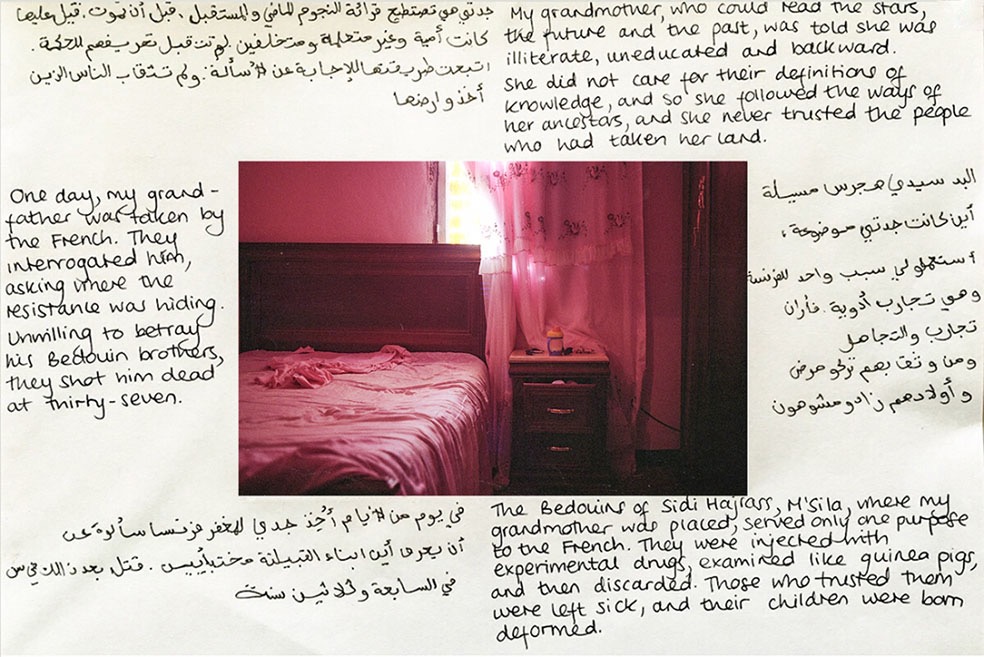 جدتي هي تصتطيع قرائة النجوم المافي والمستقبل. قبل أن تموت. قبل عليها
كانت أمية وغير متعلمة ومتخلفين. لم تقبل تعريفهم للحكمة.
اتبعت طريقتها للإجابة عن الأسألة. ولم تثقاب الناس الذين
أخذوا رضها
My grandmother, who could read the stars,
the future and the past, was told she was
illiterate, uneducated and backward.
She did not care for their definitions of
knowledge, and so she followed the ways of
her ancestors, and she never trusted the people
who had taken her land.
One day, my grand-
father was taken by
the French. They
interrogated him,
asking where the
resistance was hiding.
Unwilling to betray
his Bedouin brothers,
they shot him dead
at thirty-seven.
البد سيدي هجرس مسيلة
أين كانت جدتي موضوعة،
سبب واحد للفرنسة
وهي تجارب أدوية. فأران
تجارب والتجاهل
ومن وتقا بهم تركو مرض
وأولادهم زادو مشوهون
في يوم من الأيام أخذ جدي للمغفر فرنسا سألوة عن
أن يعرف أين ابناء القبيلة مختبأييس. قتل بعد ذالك
في السابعة وثلاثين سنة
The Bedouins of Sidi Hajrass, M'Sila, where my
grandmother was placed, served only one purpose
to the French. They were injected with
experimental drugs, examined like guinea pigs,
and then discarded. Those who trusted them
were left sick, and their children were born
deformed.